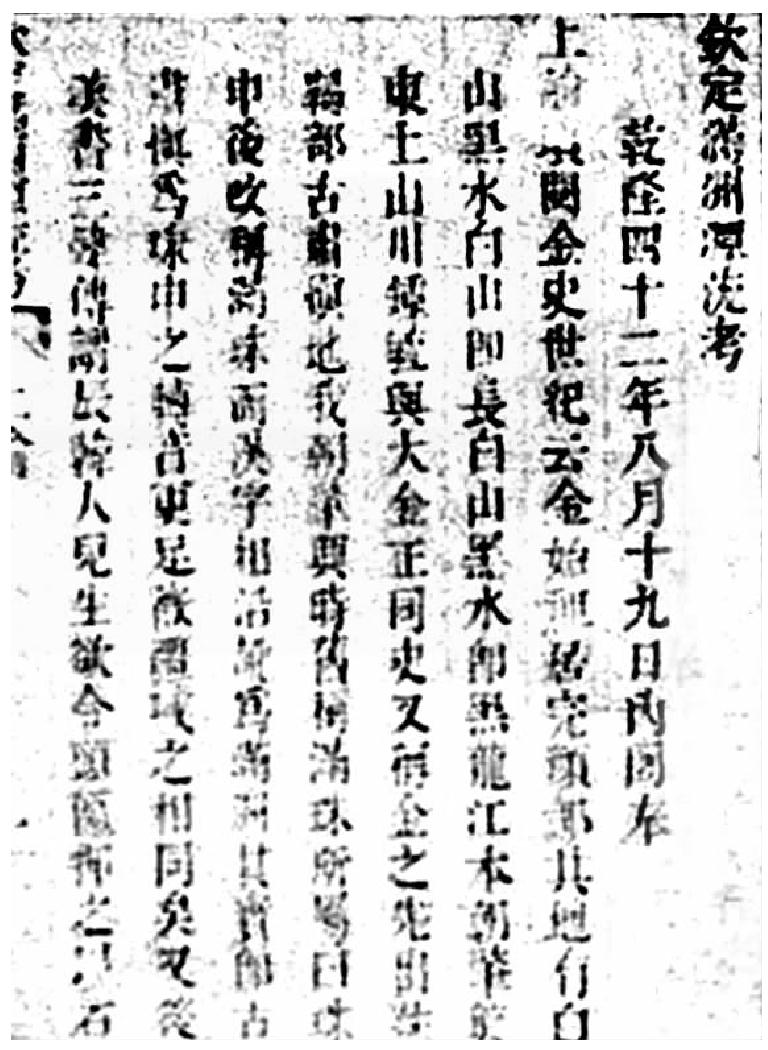 欽定滿洲源流考
乾隆四十二年八月十九日內閣奉
上諭頃閱金史世紀云金始祖居完顏部其地有白
山黑水白山即長白山黑水即黑龍江本朝肇興
東土山川鍾毓與大金正同史又稱金之先出靺
鞨部古肅慎地我朝肇興時舊稱滿珠所屬曰珠
申後改稱滿珠而漢字相沿訛爲滿洲其實即古
肅慎爲珠申之轉音更足徵疆域之相同矣又後
漢書三韓傳謂辰韓人兒生欲令頭扁押之以石